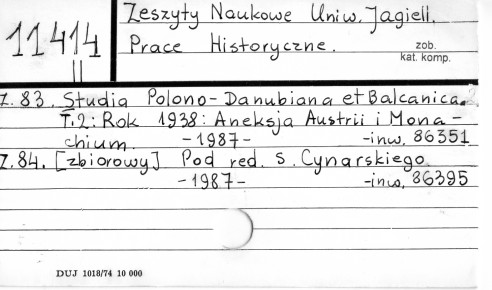 11414
II
Zeszyty Naukowe Uniw. Jagiell.
Prace Historyczne.
zob.
kat. komp.
Z. 83. Studia Polono-Danubiana et Balcanica.
T. 2: Rok 1938: Aneksja Austrii i Mona-
chium. -1987- -inw. 86351
Z. 84. [zbiorowy] Pod red. S. Cynarskiego.
-1987- -inw. 86395
DUJ 1018/74 10 000